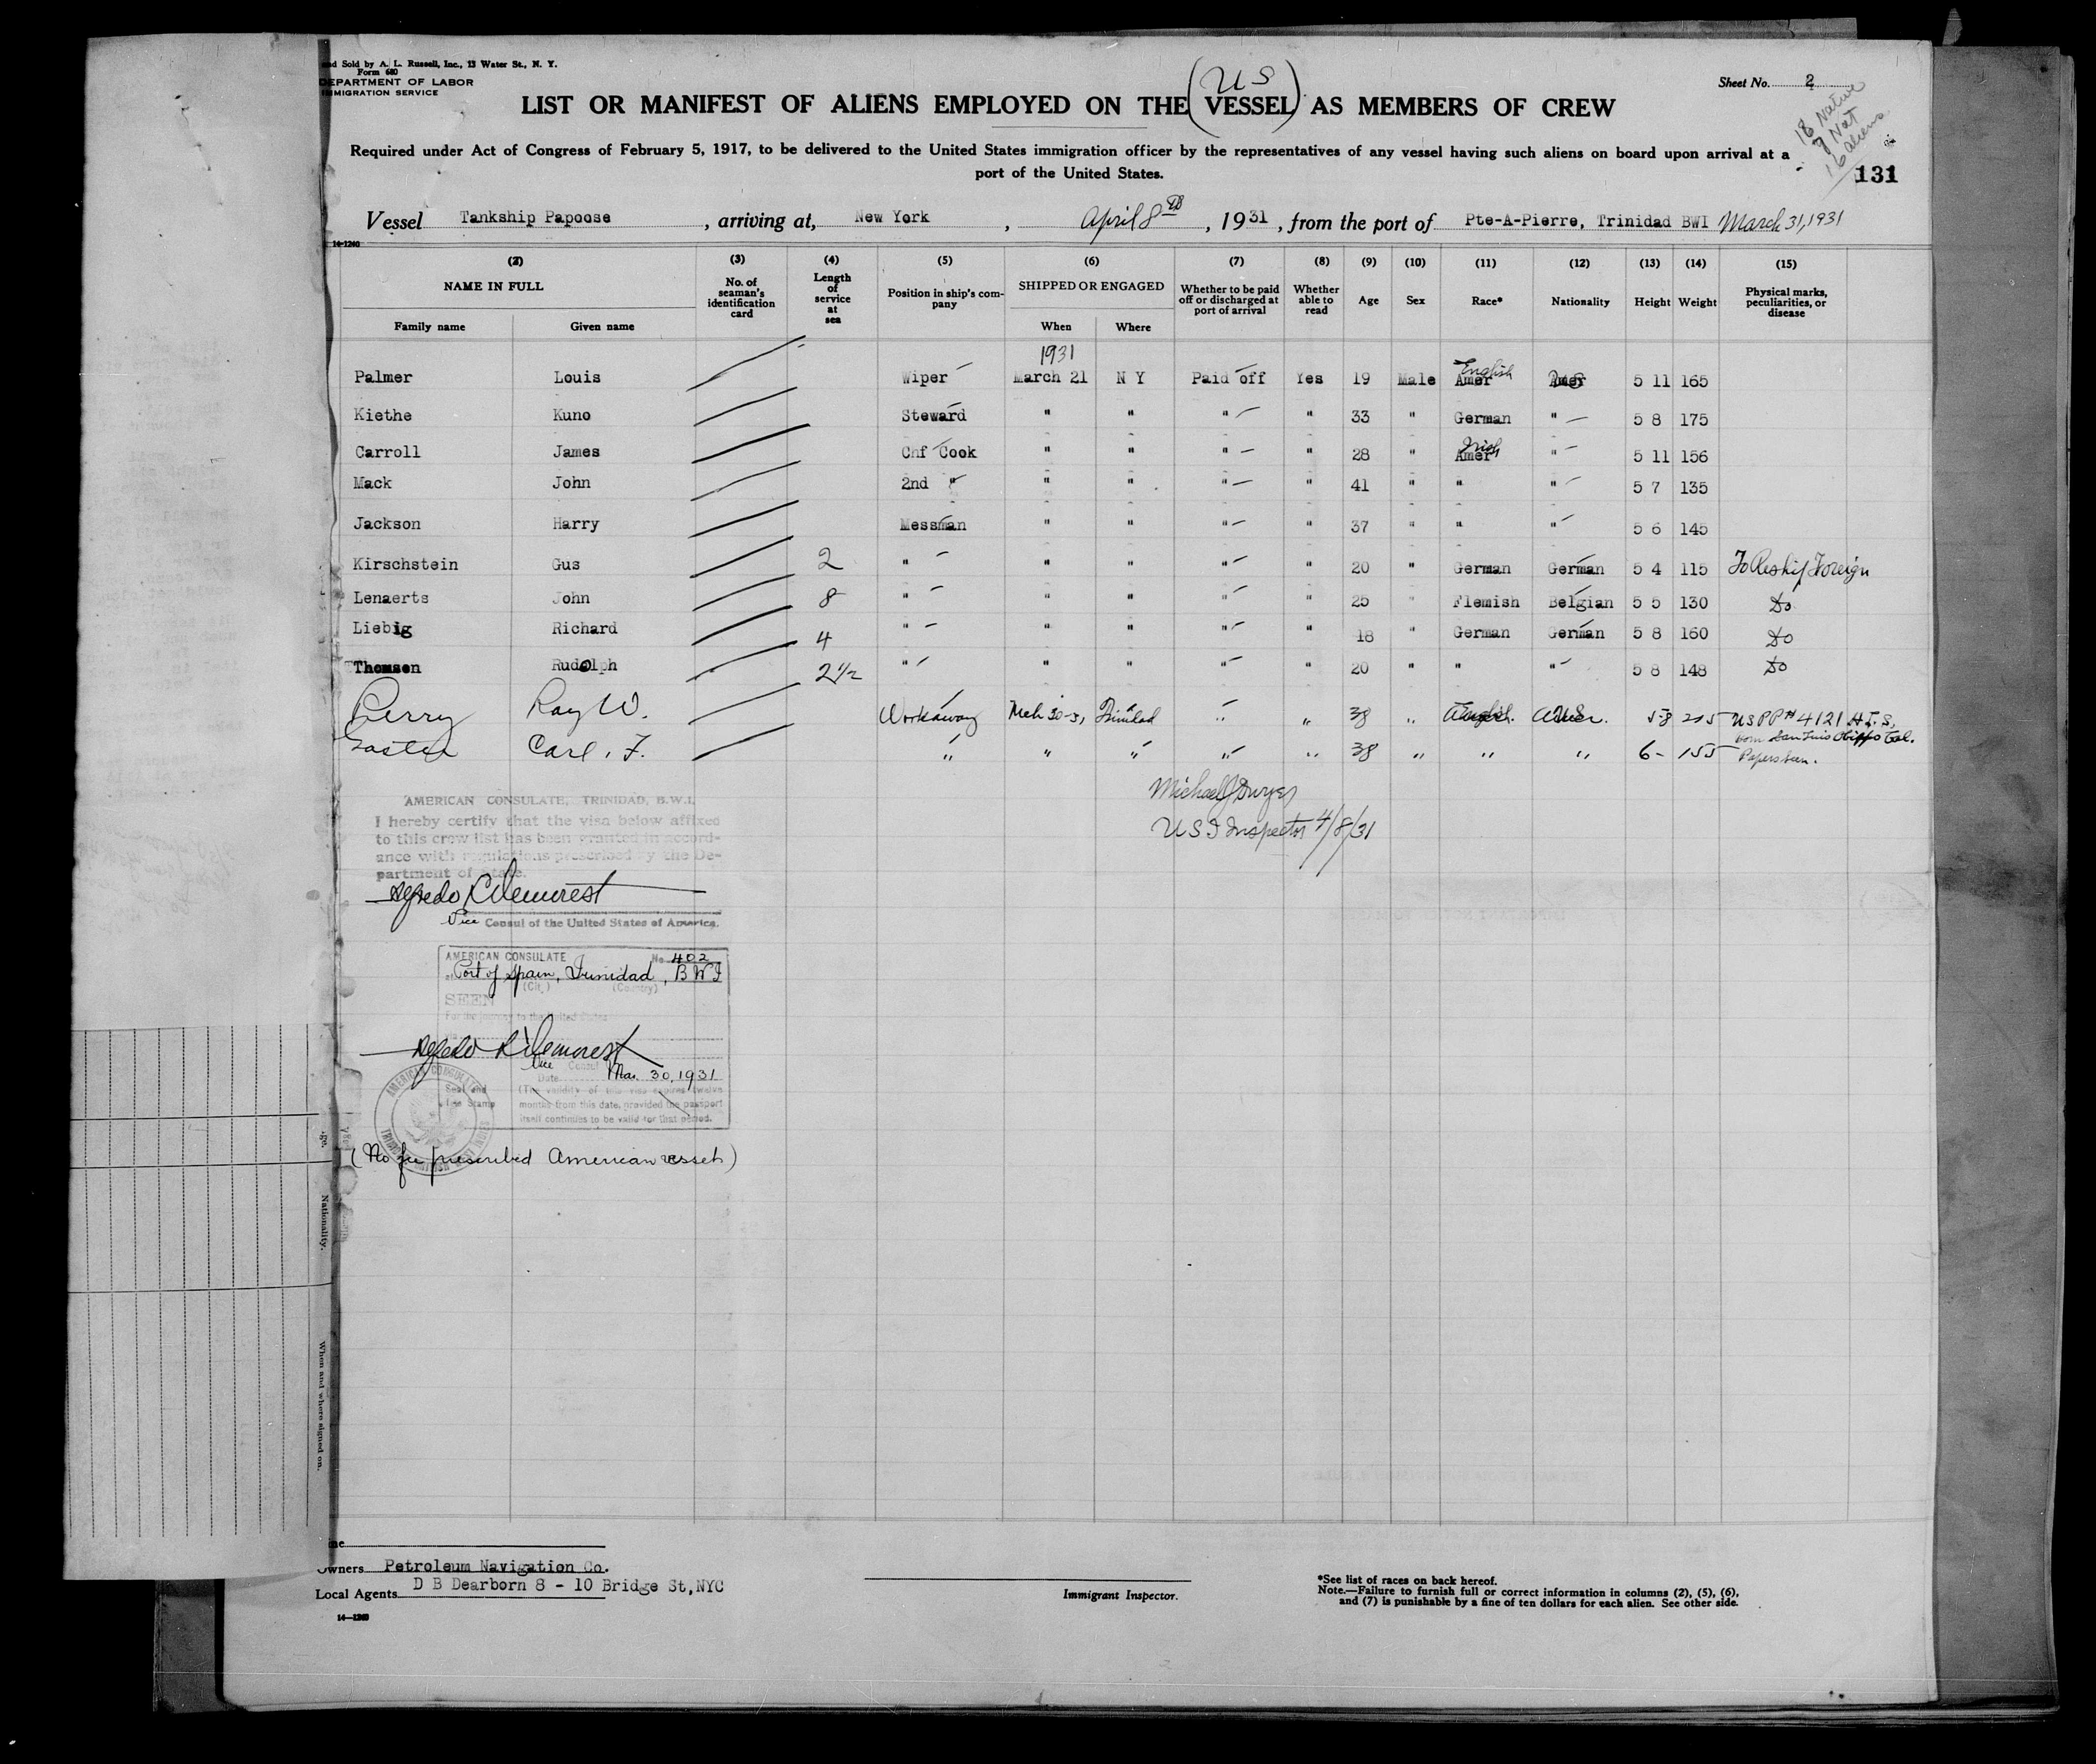 nd Sold by A. L. Russell, Inc., 13 Water St., N. Y.
Form 680
DEPARTMENT OF LABOR
IMMIGRATION SERVICE
Sheet No. 2
US
LIST OR MANIFEST OF ALIENS EMPLOYED ON THE (VESSEL) AS MEMBERS OF CREW
18 Native
9 Nat
16 aliens
Required under Act of Congress of February 5, 1917, to be delivered to the United States immigration officer by the representatives of any vessel having such aliens on board upon arrival at a
port of the United States.
131
Vessel Tankship Papoose, arriving at, New York, April 8th, 1931, from the port of Pte-A-Pierre, Trinidad BWI March 31, 1931
14-1240
(2) (3) (4) (5) (6) (7) (8) (9) (10) (11) (12) (13) (14) (15)
NAME IN FULL No. of seaman's identification card Length of service at sea Position in ship's company SHIPPED OR ENGAGED Whether to be paid off or discharged at port of arrival Whether able to read Age Sex Race* Nationality Height Weight Physical marks, peculiarities, or disease
Family name Given name When Where
1931
Palmer Louis Wiper March 21 N Y Paid off Yes 19 Male Amer English Amer US 5 11 165
Kiethe Kuno Steward " " " " 33 " German " 5 8 175
Carroll James Chf Cook " " " " 28 " Amer Irish " 5 11 156
Mack John 2nd " " " " " 41 " " " 5 7 135
Jackson Harry Messman " " " " 37 " " " 5 6 145
Kirschstein Gus 2 " " " " " 20 " German German 5 4 115 To Reship Foreign
Lenaerts John 8 " " " " " 25 " Flemish Belgian 5 5 130 Do
Liebig Richard 4 " " " " " 18 " German German 5 8 160 Do
Thomsen Rudolph 2 1/2 " " " " " 20 " " " 5 8 148 Do
Perry Ray W. Workaway Mch 30-31 Trinidad " " 38 " English Amer. U.S. 5-8 205 USPP# 4121 H.T.S.
born San Luis Obispo Cal.
Carl. F. " " " " " 38 " " " 6- 155 Papers seen.
Michael J Dwyer
U S I Inspector 4/8/31
AMERICAN CONSULATE, TRINIDAD, B.W.I.
I hereby certify that the visa below affixed
to this crew list has been granted in accord-
ance with regulations prescribed by the De-
partment of State.
Alfredo L Demorest
Vice Consul of the United States of America.
AMERICAN CONSULATE No. 402
at Port of Spain, Trinidad, B W I
(City) (Country)
SEEN
For the journey to the United States
Alfredo L Demorest
Vice Consul
Date Mar. 30, 1931
Seal and Fee Stamp
(The validity of this visa expires twelve
months from this date, provided the passport
itself continues to be valid for that period.
AMERICAN CONSULATE TRINIDAD, BRITISH WEST INDIES
(No fee prescribed American vessel)
Nationality.
When and where signed on.
Owners Petroleum Navigation Co.
Local Agents D B Dearborn 8 - 10 Bridge St, NYC
14-1240
Immigrant Inspector.
*See list of races on back hereof.
Note.—Failure to furnish full or correct information in columns (2), (5), (6),
and (7) is punishable by a fine of ten dollars for each alien. See other side.